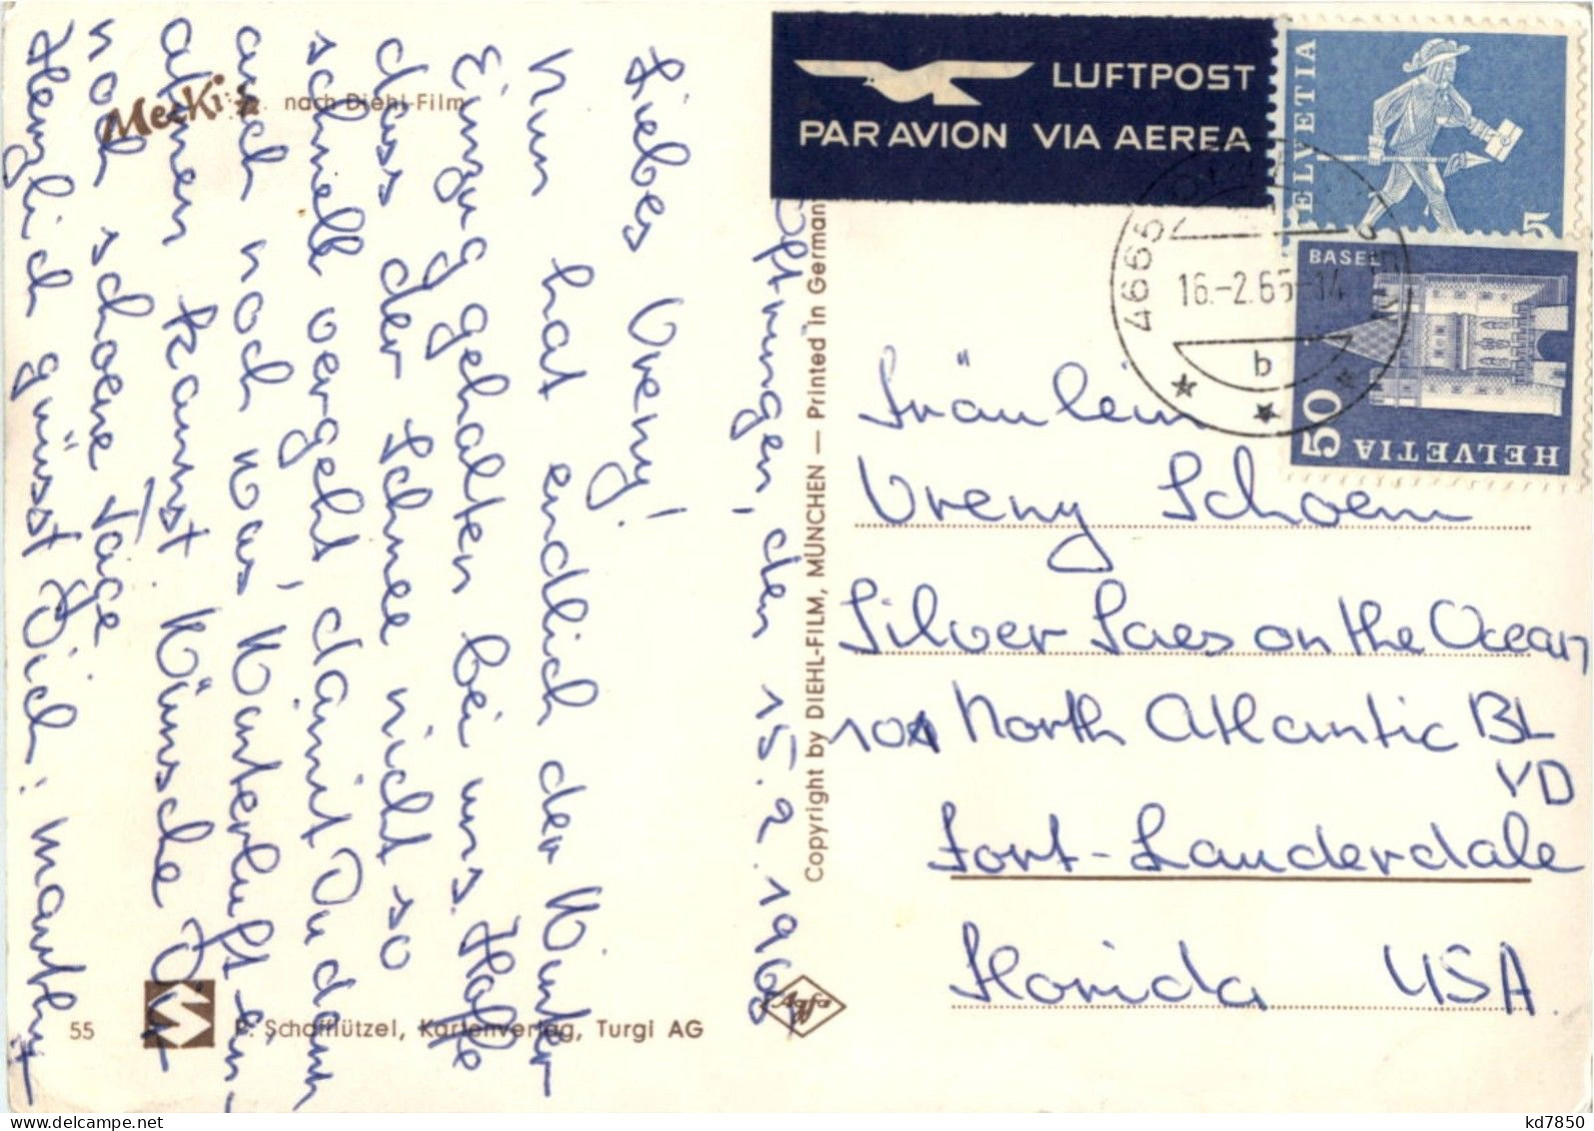 Mecki nach Diehl-Film
Oftringen, den 15. 2. 1965
Liebes Vreny!
Nun hat endlich der Winter
Einzug gehalten bei uns. Hoffe
dass der Schnee nicht so
schnell vergeht, damit Du dann
auch noch was Winterluft ein-
atmen kannst. Wünsche Dir
noch schoene Tage
Herzlich grüsst Dich: Marthy
55
F. Schafflützel, Kartenverlag, Turgi AG
Agfa
Copyright by DIEHL-FILM, MÜNCHEN — Printed in Germany
LUFTPOST
PAR AVION VIA AEREA
HELVETIA
5
4665 OFTRINGEN
16.-2.65-14
b
BASEL
50
HELVETIA
Fräulein
Vreny Schoeni
Silver Saes on the Ocean
101 North Atlantic BL
VD
Fort-Lauderdale
Florida USA
kd7850